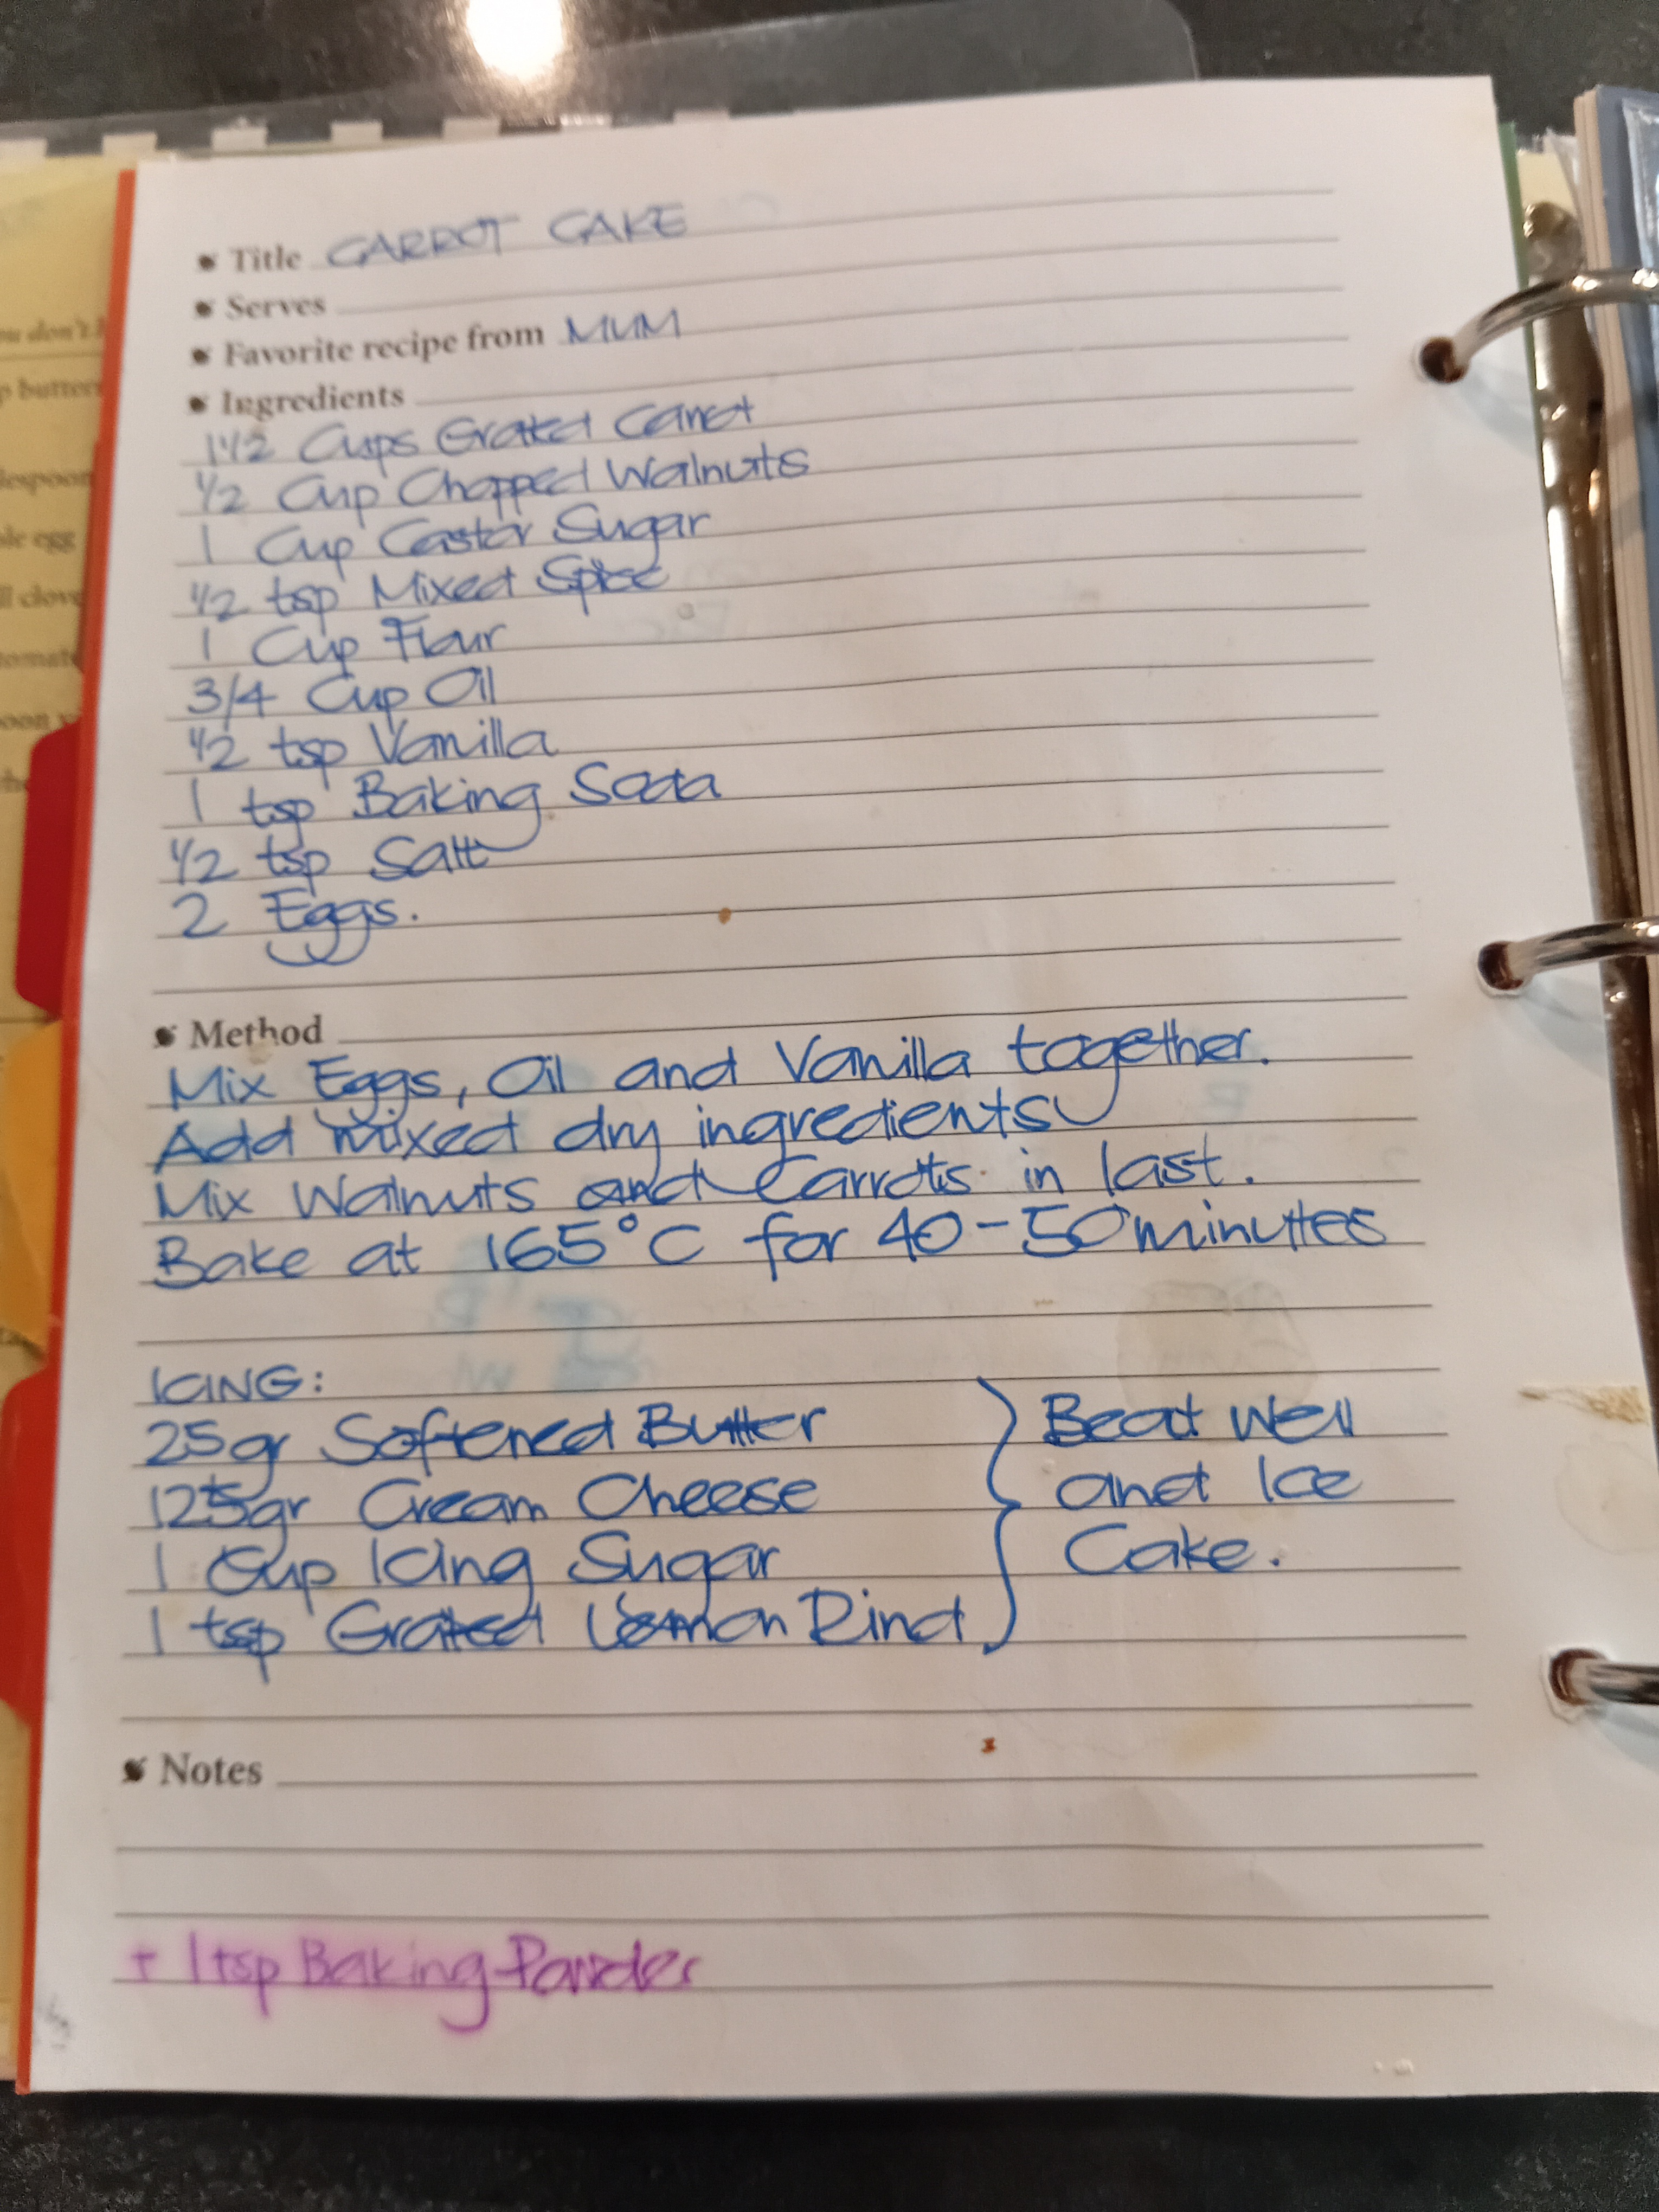 Title CARROT CAKE
Serves
Favorite recipe from MUM
Ingredients
1 1/2 Cups Grated Carrot
1/2 Cup Chopped Walnuts
1 Cup Castor Sugar
1/2 tsp Mixed Spice
1 Cup Flour
3/4 Cup Oil
1/2 tsp Vanilla
1 tsp Baking Soda
1/2 tsp Salt
2 Eggs.
Method
Mix Eggs, Oil and Vanilla together.
Add mixed dry ingredients
Mix Walnuts and Carrots in last.
Bake at 165°C for 40-50 minutes
ICING:
25gr Softened Butter
125gr Cream Cheese
1 Cup Icing Sugar
1 tsp Grated Lemon Rind
Beat Well
and Ice
Cake.
Notes
+ 1 tsp Baking Powder